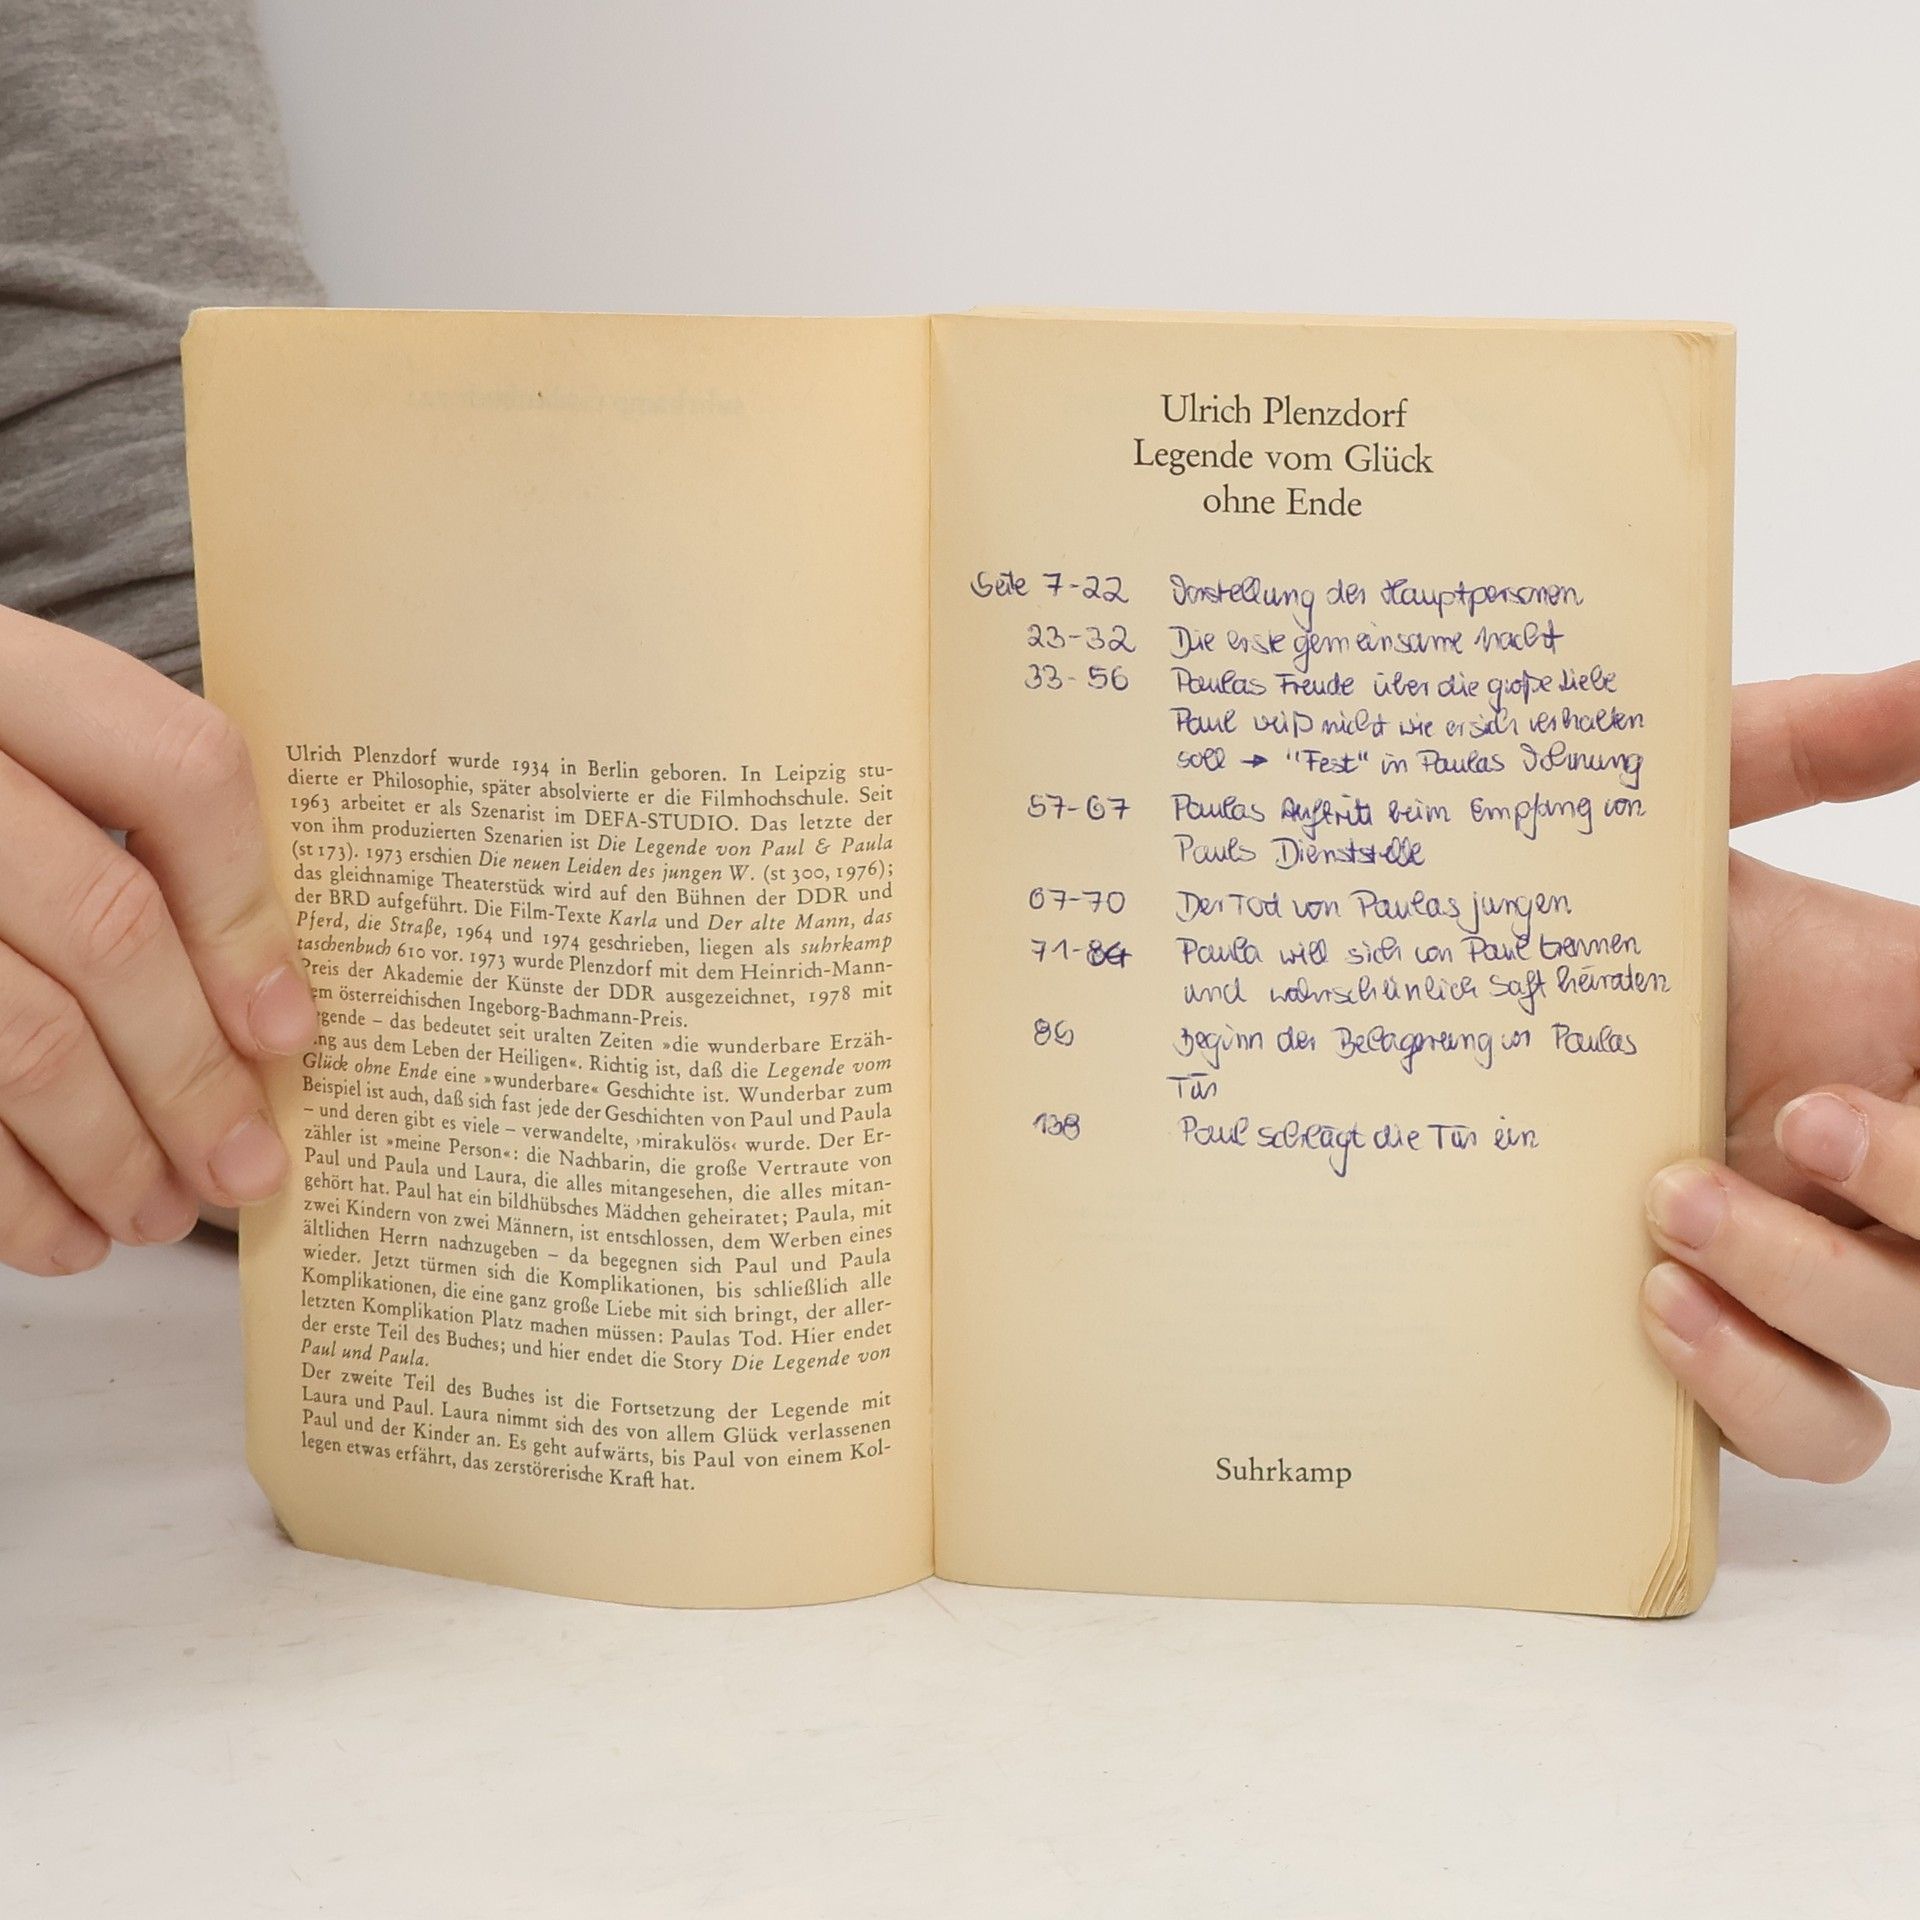 Ulrich Plenzdorf wurde 1934 in Berlin geboren. In Leipzig stu-
dierte er Philosophie, später absolvierte er die Filmhochschule. Seit
1963 arbeitet er als Szenarist im DEFA-STUDIO. Das letzte der
von ihm produzierten Szenarien ist Die Legende von Paul & Paula
(st 173). 1973 erschien Die neuen Leiden des jungen W. (st 300, 1976);
das gleichnamige Theaterstück wird auf den Bühnen der DDR und
der BRD aufgeführt. Die Film-Texte Karla und Der alte Mann, das
Pferd, die Straße, 1964 und 1974 geschrieben, liegen als suhrkamp
taschenbuch 610 vor. 1973 wurde Plenzdorf mit dem Heinrich-Mann-
Preis der Akademie der Künste der DDR ausgezeichnet, 1978 mit
em österreichischen Ingeborg-Bachmann-Preis.
gende – das bedeutet seit uralten Zeiten »die wunderbare Erzäh-
ng aus dem Leben der Heiligen«. Richtig ist, daß die Legende vom
Glück ohne Ende eine »wunderbare« Geschichte ist. Wunderbar zum
Beispiel ist auch, daß sich fast jede der Geschichten von Paul und Paula
– und deren gibt es viele – verwandelte, ›mirakulös‹ wurde. Der Er-
zähler ist »meine Person«: die Nachbarin, die große Vertraute von
Paul und Paula und Laura, die alles mitangesehen, die alles mitan-
gehört hat. Paul hat ein bildhübsches Mädchen geheiratet; Paula, mit
zwei Kindern von zwei Männern, ist entschlossen, dem Werben eines
ältlichen Herrn nachzugeben – da begegnen sich Paul und Paula
wieder. Jetzt türmen sich die Komplikationen, bis schließlich alle
Komplikationen, die eine ganz große Liebe mit sich bringt, der aller-
letzten Komplikation Platz machen müssen: Paulas Tod. Hier endet
der erste Teil des Buches; und hier endet die Story Die Legende von
Paul und Paula.
Der zweite Teil des Buches ist die Fortsetzung der Legende mit
Laura und Paul. Laura nimmt sich des von allem Glück verlassenen
Paul und der Kinder an. Es geht aufwärts, bis Paul von einem Kol-
legen etwas erfährt, das zerstörerische Kraft hat.
Ulrich Plenzdorf
Legende vom Glück
ohne Ende
Seite 7-22 Vorstellung der Hauptpersonen
23-32 Die erste gemeinsame Nacht
33-56 Paulas Freude über die große Liebe
Paul weiß nicht wie er sich verhalten
soll → "Fest" in Paulas Wohnung
57-67 Paulas Auftritt beim Empfang von
Pauls Dienststelle
67-70 Der Tod von Paulas jungen
71-84 Paula will sich von Paul trennen
und wahrscheinlich Saft heiraten
Beginn der Belagerung vor Paulas
Tür
138 Paul schlägt die Tür ein
Suhrkamp